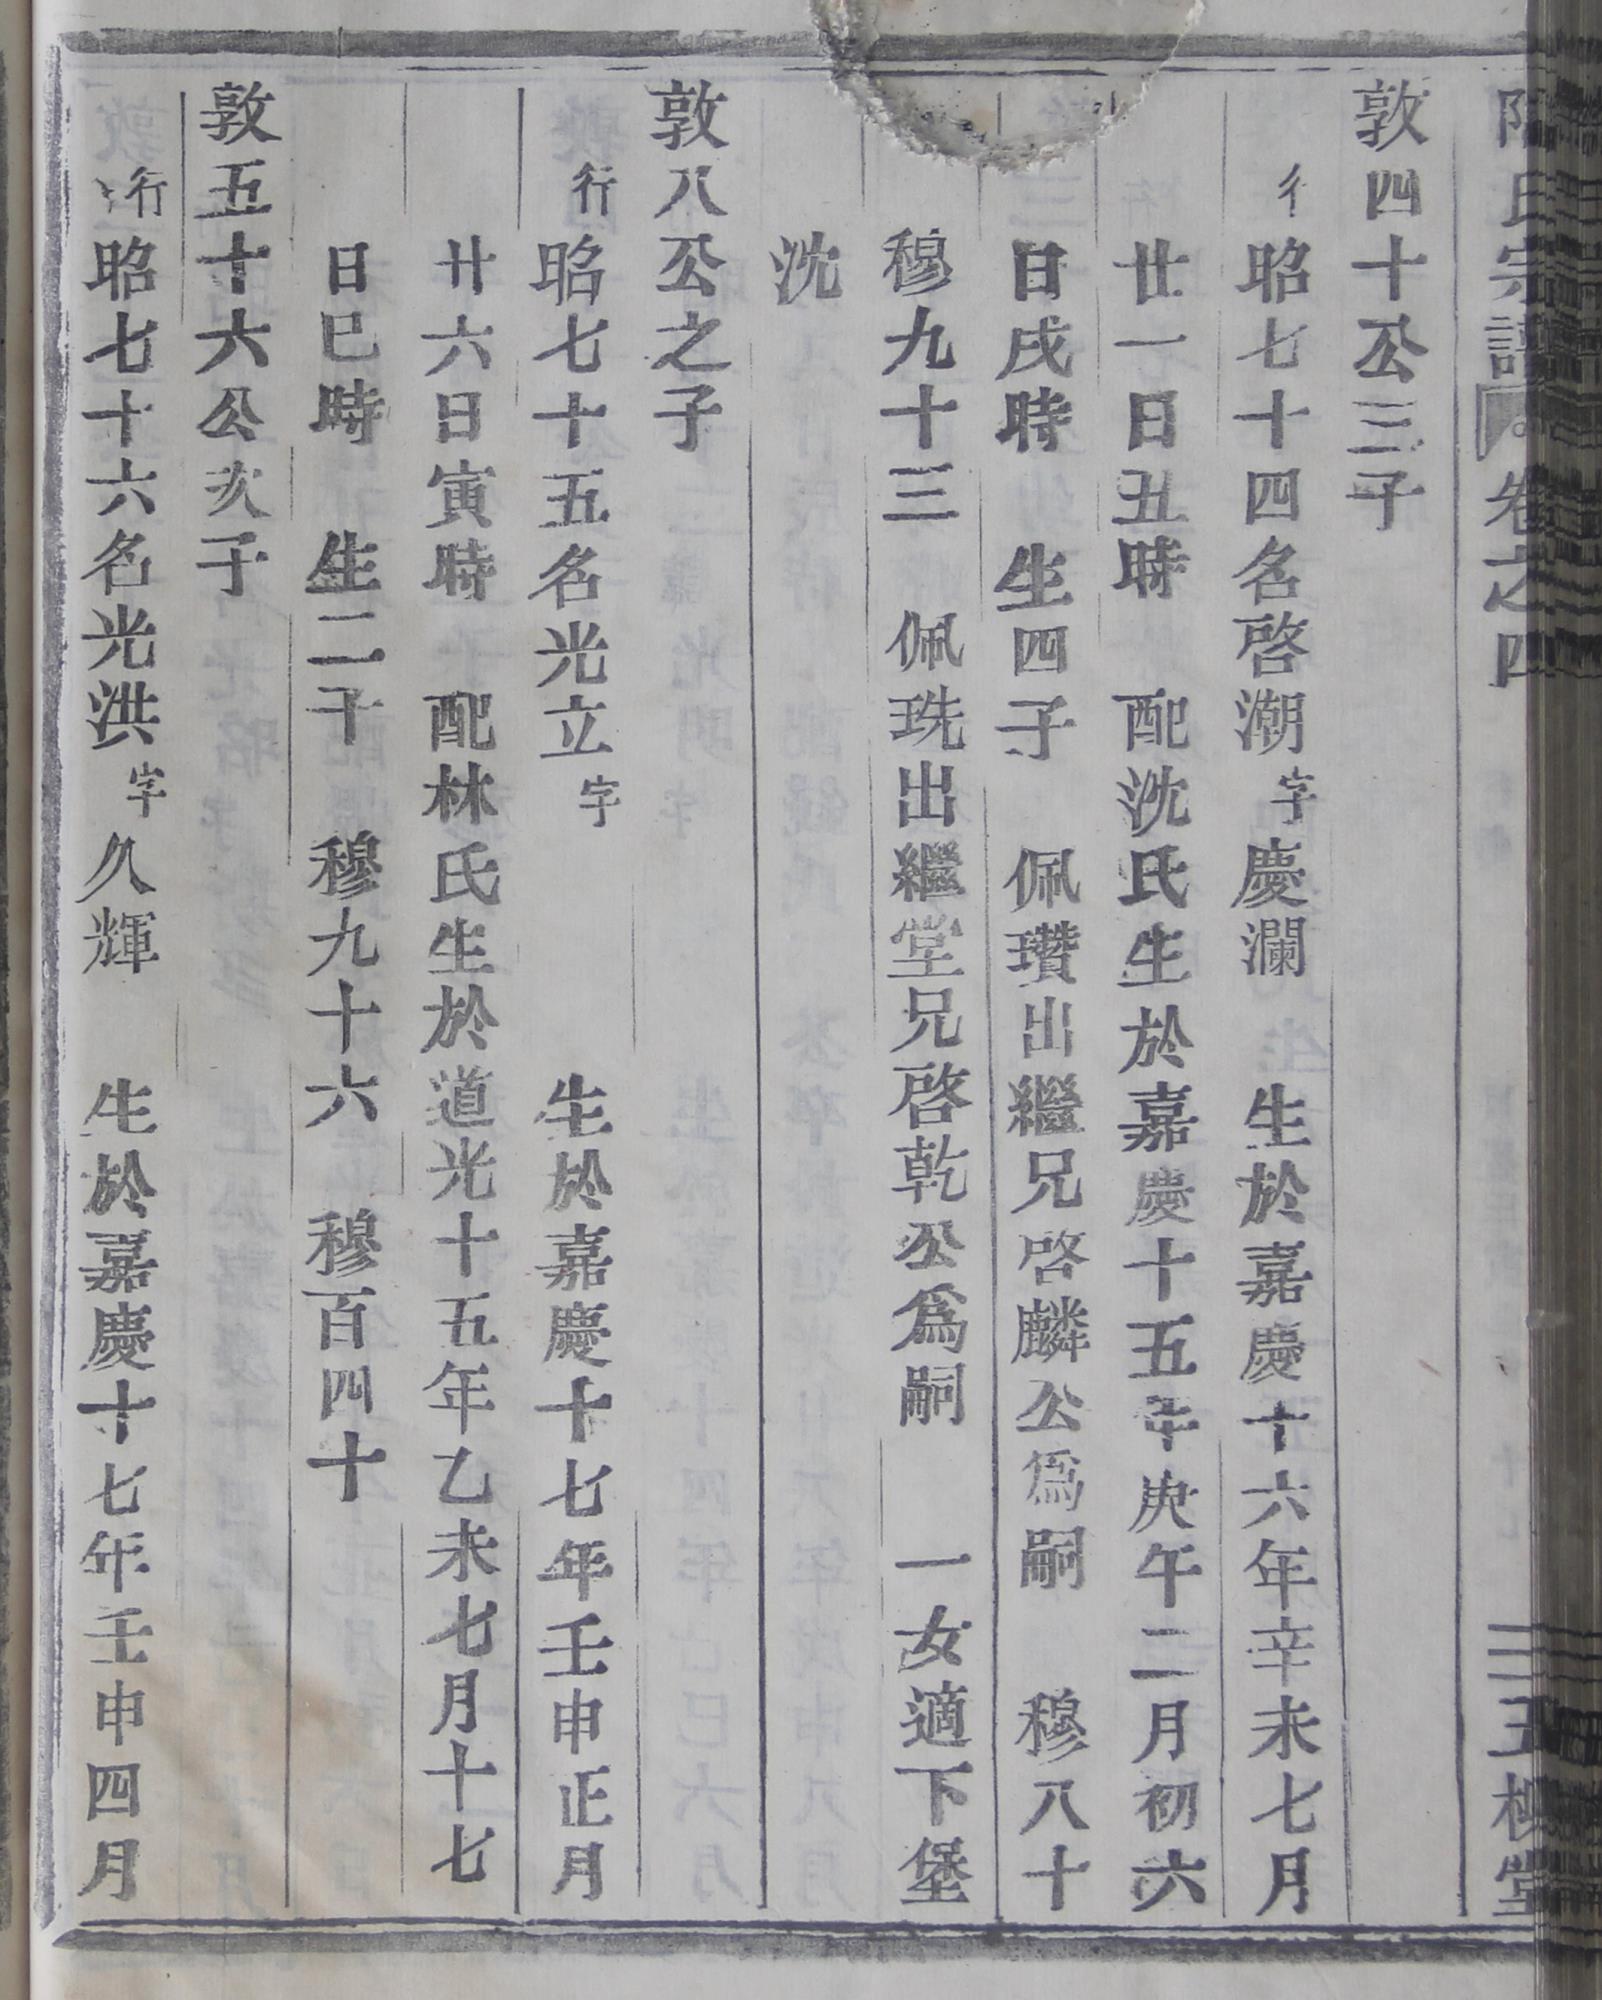 氏宗譜 卷之四 三五 堂
敦四十公三子
行昭七十四名啓潮字慶瀾 生於嘉慶十六年辛未七月
廿一日丑時 配沈氏生於嘉慶十五年庚午二月初六
日戌時 生四子 佩瓚出繼兄啓麟公爲嗣 穆八十
穆九十三 佩珠出繼堂兄啓乾公爲嗣 一女適下堡
沈
敦八公之子
行昭七十五名光立字 生於嘉慶十七年壬申正月
廿六日寅時 配林氏生於道光十五年乙未七月十七
日巳時 生二子 穆九十六 穆百四十
敦五十六公次子
行昭七十六名光洪字久輝 生於嘉慶十七年壬申四月